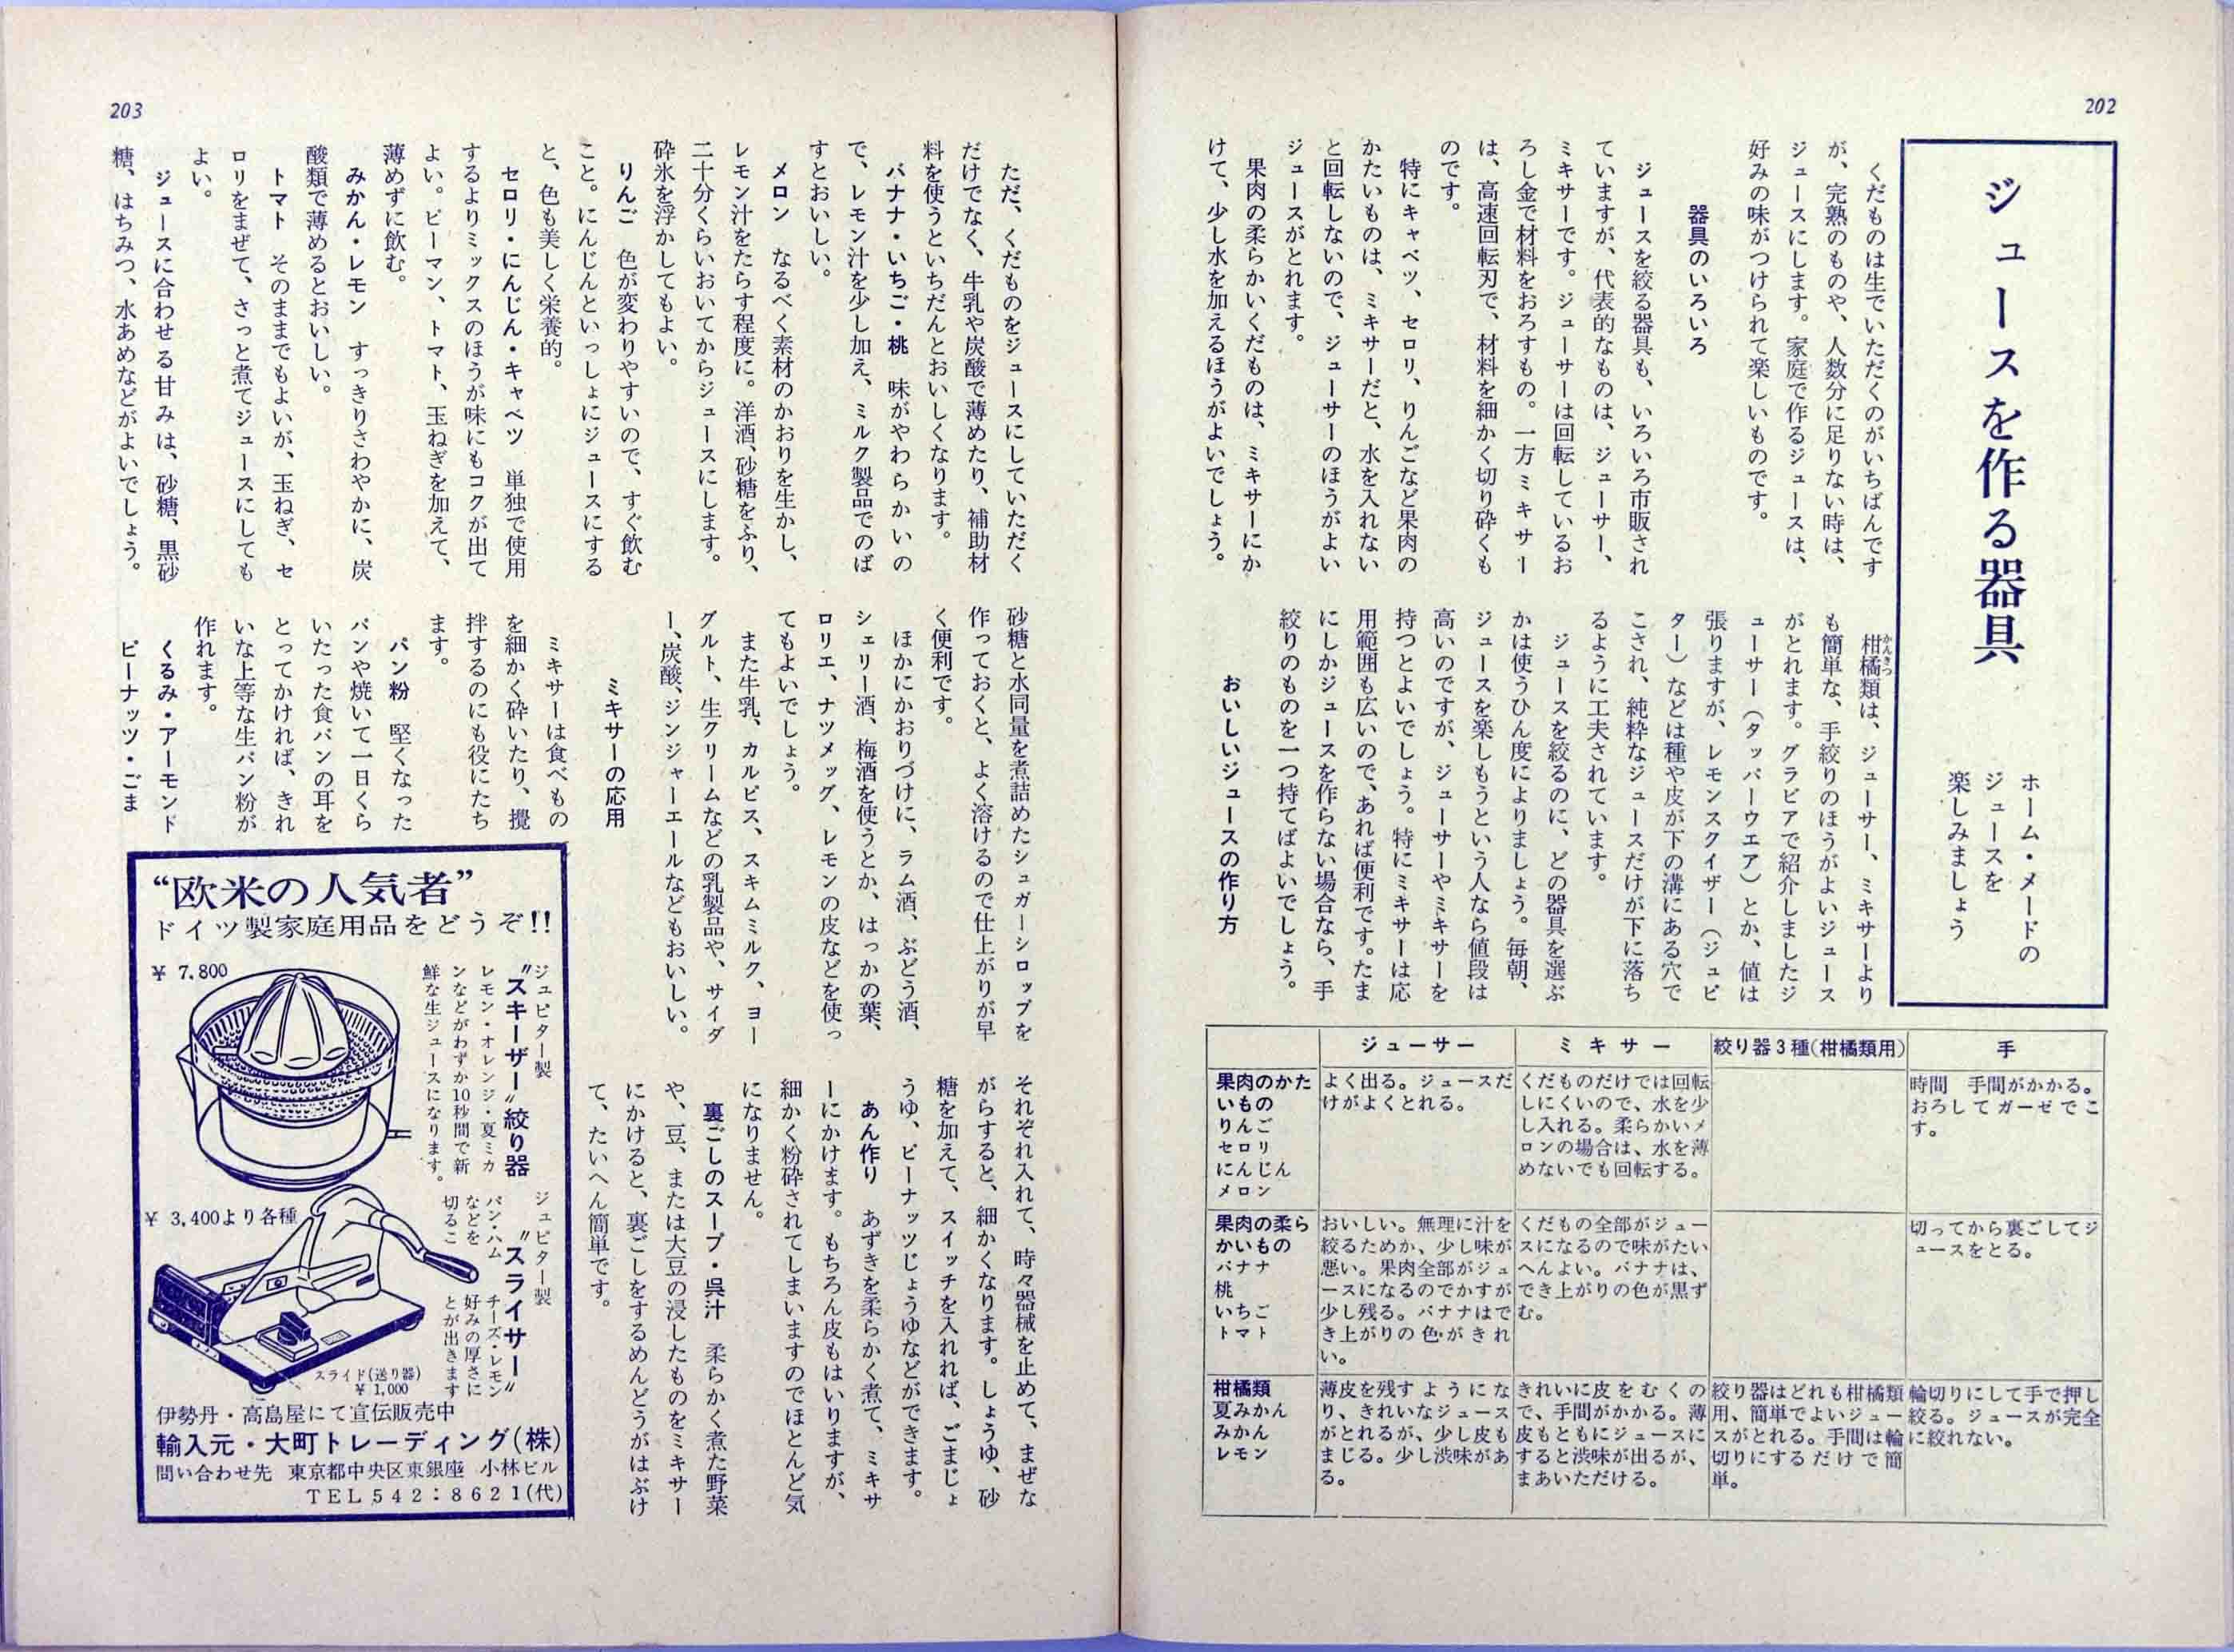 202
ジュースを作る器具
ホーム・メードの
ジュースを
楽しみましょう
くだものは生でいただくのがいちばんです
が、完熟のものや、人数分に足りない時は、
ジュースにします。家庭で作るジュースは、
好みの味がつけられて楽しいものです。
器具のいろいろ
ジュースを絞る器具も、いろいろ市販され
ていますが、代表的なものは、ジューサー、
ミキサーです。ジューサーは回転しているお
ろし金で材料をおろすもの。一方ミキサー
は、高速回転刃で、材料を細かく切り砕くも
のです。
特にキャベツ、セロリ、りんごなど果肉の
かたいものは、ミキサーだと、水を入れない
と回転しないので、ジューサーのほうがよい
ジュースがとれます。
果肉の柔らかいくだものは、ミキサーにか
けて、少し水を加えるほうがよいでしょう。
柑橘類は、ジューサー、ミキサーより
かんきつ
も簡単な、手絞りのほうがよいジュース
がとれます。グラビアで紹介しましたジ
ューサー（タッパーウエア）とか、値は
張りますが、レモンスクイザー（ジュピ
ター）などは種や皮が下の溝にある穴で
こされ、純粋なジュースだけが下に落ち
るように工夫されています。
ジュースを絞るのに、どの器具を選ぶ
かは使うひん度によりましょう。毎朝、
ジュースを楽しもうという人なら値段は
高いのですが、ジューサーやミキサーを
持つとよいでしょう。特にミキサーは応
用範囲も広いので、あれば便利です。たま
にしかジュースを作らない場合なら、手
絞りのものを一つ持てばよいでしょう。
おいしいジュースの作り方
ジューサー
ミキサー
絞り器3種(柑橘類用)
手
果肉のかた
いもの
りんご
セロリ
にんじん
メロン
よく出る。ジュースだ
けがよくとれる。
くだものだけでは回転
しにくいので、水を少
し入れる。柔らかいメ
ロンの場合は、水を薄
めないでも回転する。
時間　手間がかかる。
おろしてガーゼでこ
す。
果肉の柔ら
かいもの
バナナ
桃
いちご
トマト
おいしい。無理に汁を
絞るためか、少し味が
悪い。果肉全部がジュ
ースになるのでかすが
少し残る。バナナはで
き上がりの色がきれ
い。
くだもの全部がジュー
スになるので味がたい
へんよい。バナナは、
でき上がりの色が黒ず
む。
切ってから裏ごしてジ
ュースをとる。
柑橘類
夏みかん
みかん
レモン
薄皮を残すようにな
り、きれいなジュース
がとれるが、少し皮も
まじる。少し渋味があ
る。
きれいに皮をむくの
で、手間がかかる。薄
皮もともにジュースに
すると渋味が出るが、
まあいただける。
絞り器はどれも柑橘類
用、簡単でよいジュー
スがとれる。手間は輪
切りにするだけで簡
単。
輪切りにして手で押し
絞る。ジュースが完全
に絞れない。
203
ただ、くだものをジュースにしていただく
だけでなく、牛乳や炭酸で薄めたり、補助材
料を使うといちだんとおいしくなります。
バナナ・いちご・桃　味がやわらかいの
で、レモン汁を少し加え、ミルク製品でのば
すとおいしい。
メロン　なるべく素材のかおりを生かし、
レモン汁をたらす程度に。洋酒、砂糖をふり、
二十分くらいおいてからジュースにします。
砕氷を浮かしてもよい。
りんご　色が変わりやすいので、すぐ飲む
こと。にんじんといっしょにジュースにする
と、色も美しく栄養的。
セロリ・にんじん・キャベツ　単独で使用
するよりミックスのほうが味にもコクが出て
よい。ピーマン、トマト、玉ねぎを加えて、
薄めずに飲む。
みかん・レモン　すっきりさわやかに、炭
酸類で薄めるとおいしい。
トマト　そのままでもよいが、玉ねぎ、セ
ロリをまぜて、さっと煮てジュースにしても
よい。
ジュースに合わせる甘みは、砂糖、黒砂
糖、はちみつ、水あめなどがよいでしょう。
砂糖と水同量を煮詰めたシュガーシロップを
作っておくと、よく溶けるので仕上がりが早
く便利です。
ほかにかおりづけに、ラム酒、ぶどう酒、
シェリー酒、梅酒を使うとか、はっかの葉、
ロリエ、ナツメッグ、レモンの皮などを使っ
てもよいでしょう。
また牛乳、カルピス、スキムミルク、ヨー
グルト、生クリームなどの乳製品や、サイダ
ー、炭酸、ジンジャーエールなどもおいしい。
ミキサーの応用
ミキサーは食べもの
を細かく砕いたり、攪
拌するのにも役にたち
ます。
パン粉　堅くなった
パンや焼いて一日くら
いたった食パンの耳を
とってかければ、きれ
いな上等な生パン粉が
作れます。
くるみ・アーモンド
ピーナッツ・ごま
それぞれ入れて、時々器械を止めて、まぜな
がらすると、細かくなります。しょうゆ、砂
糖を加えて、スイッチを入れれば、ごまじょ
うゆ、ピーナッツじょうゆなどができます。
あん作り　あずきを柔らかく煮て、ミキサ
ーにかけます。もちろん皮もはいりますが、
細かく粉砕されてしまいますのでほとんど気
になりません。
裏ごしのスープ・呉汁　柔らかく煮た野菜
や、豆、または大豆の浸したものをミキサー
にかけると、裏ごしをするめんどうがはぶけ
て、たいへん簡単です。
“欧米の人気者”
ドイツ製家庭用品をどうぞ!!
¥ 7,800
ジュピター製
〝スキーザー〟絞り器
レモン・オレンジ・夏ミカ
ンなどがわずか10秒間で新
鮮な生ジュースになります。
¥ 3,400より各種
ジュピター製
〝スライサー〟
パン・ハム　チーズ・レモン
などを　好みの厚さに
切るこ　とが出きます
スライド(送り器)
¥ 1,000
伊勢丹・高島屋にて宣伝販売中
輸入元・大町トレーディング(株)
問い合わせ先　東京都中央区東銀座　小林ビル
TEL542:8621(代)